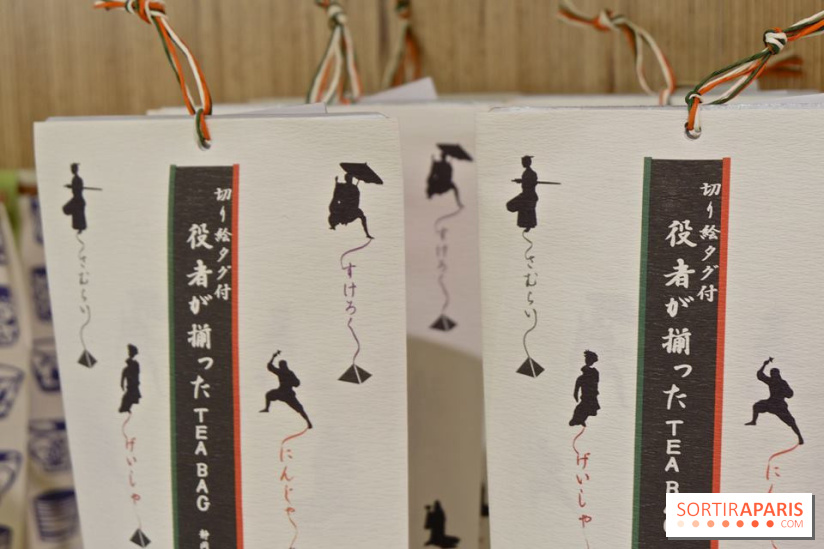 切り絵タグ付
役者が揃った TEA BAG
さむらい
すけろく
げいしゃ
にんじゃ
すけろく
切り絵タグ付
役者が揃った TEA B
さむらい
げいしゃ
にん
SORTIRAPARIS
.COM